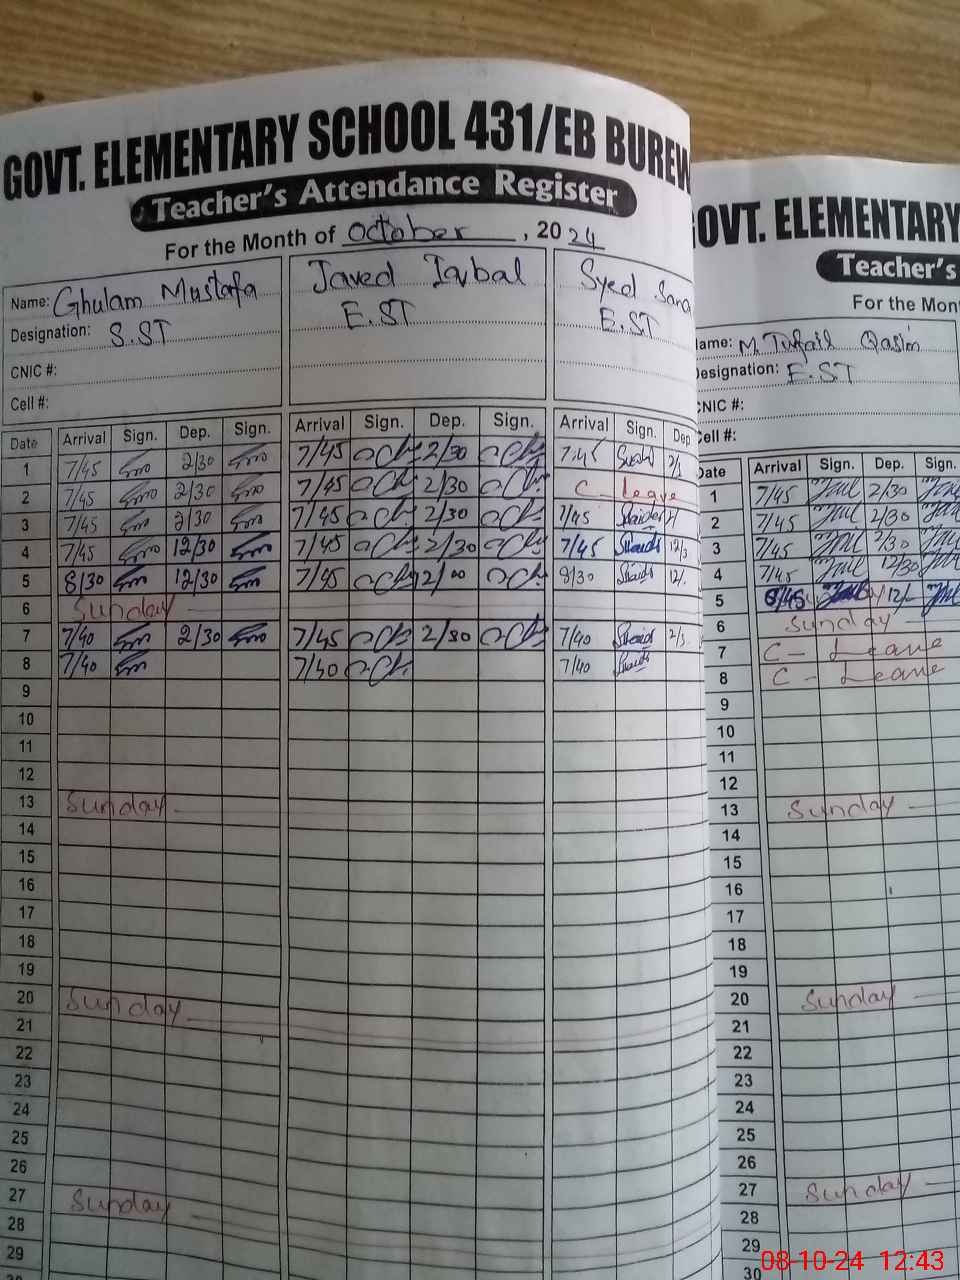 GOVT. ELEMENTARY SCHOOL 431/EB BUREW
Teacher's Attendance Register
For the Month of October, 2024
Name: Ghulam Mustafa Javed Iqbal Syed Sana
Designation: S.ST E.ST E.ST
CNIC #:
Cell #:
Date Arrival Sign. Dep. Sign. Arrival Sign. Dep. Sign. Arrival Sign. Dep
1 7/45 2/30 7/45 2/30 7:45
2 7/45 2/30 7/45 2/30 C - Leave
3 7/45 2/30 7/45 2/30 7/45
4 7/45 12/30 7/45 2/30 7/45 12/3
5 8/30 12/30 7/45 8/30 12/
6 Sunday
7 7/40 2/30 7/45 2/30 7/40 2/3
8 7/40 7/40
9
10
11
12
13 Sunday
14
15
16
17
18
19
20 Sunday
21
22
23
24
25
26
27 Sunday
28
29
OVT. ELEMENTARY
Teacher's
For the Mon
ame: M. Tufail Qasim
esignation: E.ST
NIC #:
ell #:
Date Arrival Sign. Dep. Sign.
1 7/45 2/30
2 7/45 2/30
3 7/45 2/30
4 7/45 12/30
5 12/-
6 Sunday
7 C - Leave
8 C - Leave
9
10
11
12
13 Sunday
14
15
16
17
18
19
20 Sunday
21
22
23
24
25
26
27 Sunday
28
29
30
08-10-24 12:43